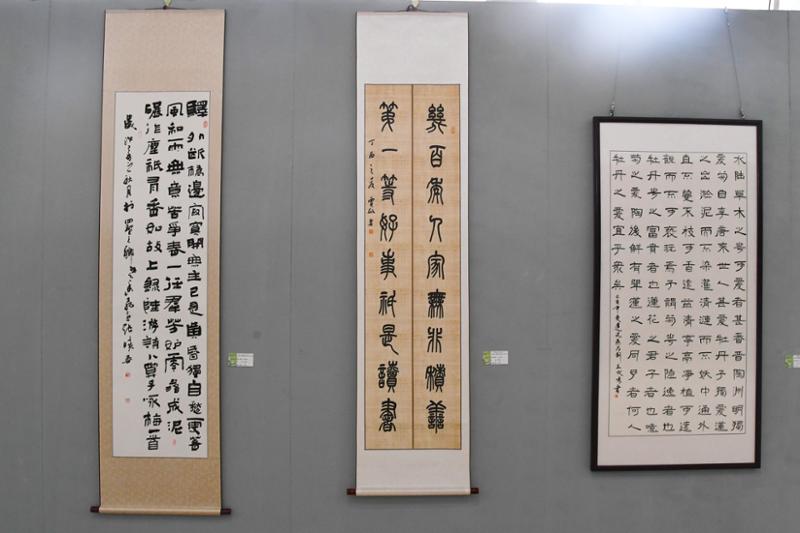 驛外斷橋邊寂寞開無主已是黃昏獨自愁更著
風和雨無意苦爭春一任羣芳妒零落成泥
碾作塵祇有香如故上錄陸游詞卜算子咏梅一首
幾百年人家無非積善
第一等好事祇是讀書
丁酉之夏
水陸草木之花可愛者甚蕃晉陶淵明獨
愛菊自李唐來世人甚愛牡丹予獨愛蓮
之出淤泥而不染濯清漣而不妖中通外
直不蔓不枝可香遠益清亭亭淨植可遠
觀而不可褻玩焉予謂菊花之隱逸者也
牡丹花之富貴者也蓮花之君子者也噫
菊之愛陶後鮮有聞蓮之愛同予者何人
牡丹之愛宜乎衆矣